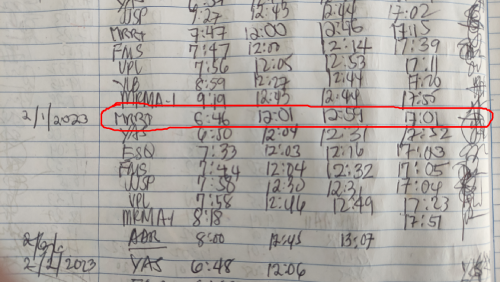 JJSP 7:27 12:43 12:44 17:02
MRRJ 7:47 12:00 12:46 17:15
FMS 7:47 12:00 12:14 17:39
VPL 7:56 12:05 12:53 17:11
8:59 12:27 12:44 17:20
MRMA-1 9:19 12:43 12:44 17:55
2/1/2023 MRRJ 6:46 12:01 12:54 17:01
YAS 6:50 12:04 12:31 17:52
ESQ 7:33 12:03 12:16 17:03
FMS 7:44 12:04 12:32 17:05
JJSP 7:58 12:30 12:31 17:04
VPL 7:58 12:46 12:49 17:23
MRMA-1 8:18 17:51
ADR 8:00 12:45 13:07
2/2/2023 YAS 6:48 12:06